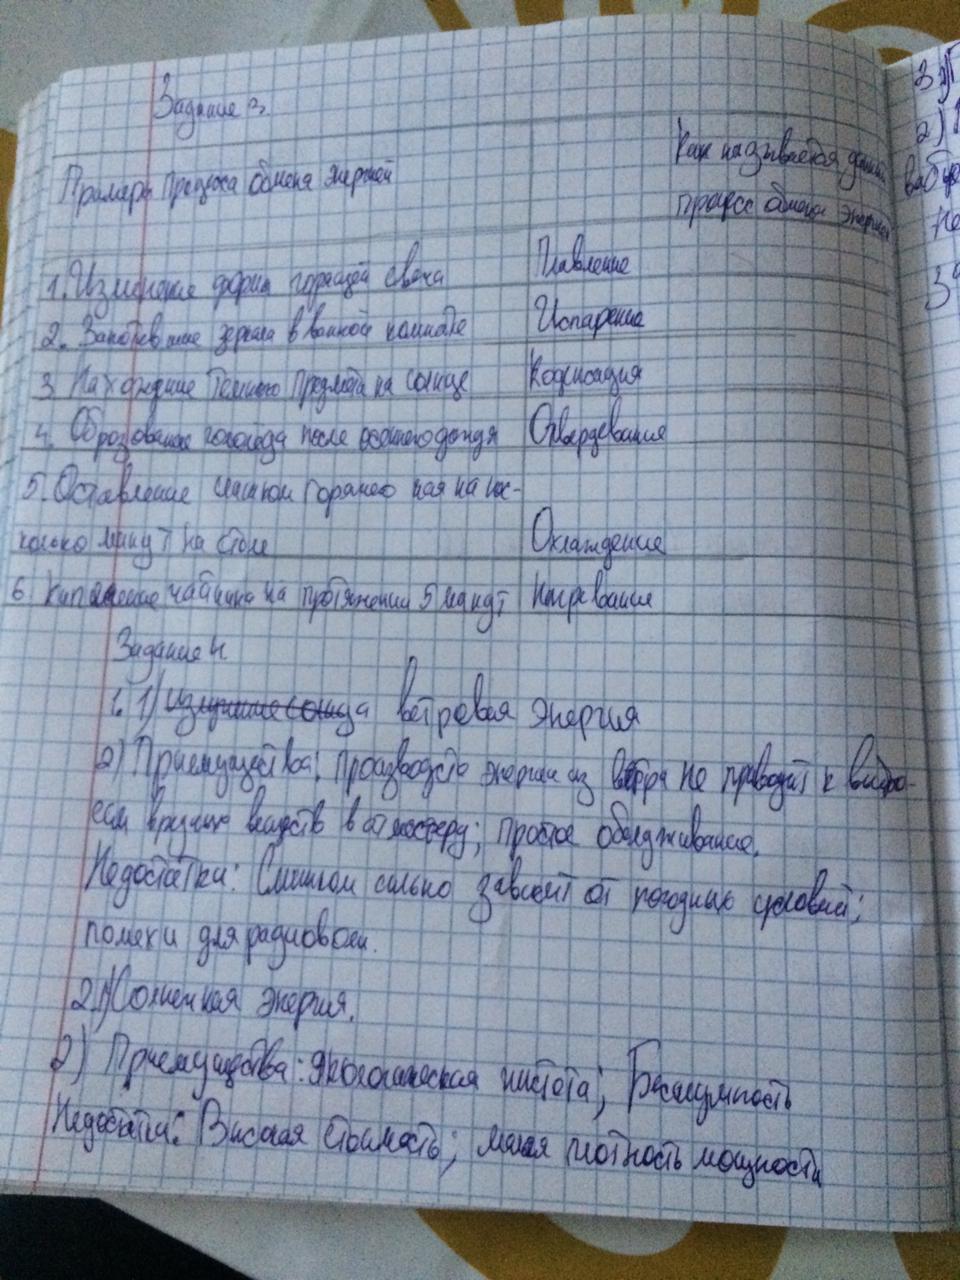 Задание 3.
Как называется данный
Примеры процесса обмена энергией
процесс обмена энергией
1. Изменение формы горящей свечи Плавление
2. Запотевшие зеркала в ванной комнате Испарение
3 Нахождение темного предмета на солнце Кодисация
4. Образование гололеда после осеннего дождя Отвердевания
5. Оставление слишком горячего чая на нес-
колько минут на столе Охлаждение
6 Кипячение чайника на протяжении 5 минут Нагревание
Задание 4
1. 1) ветровая энергия
2) Приемущества: производство энергии из ветра не приводит к выбро-
сам вредных веществ в атмосферу; простое обслуживание.
Недостатки: Слишком сильно зависит от погодных условий;
помехи для радиоволн.
2.1) Солнечная энергия.
2) Приемущества: экологическая чистота; Бесшумность
Недостатки: Высокая стоимость; малая плотность мощности
3
2)